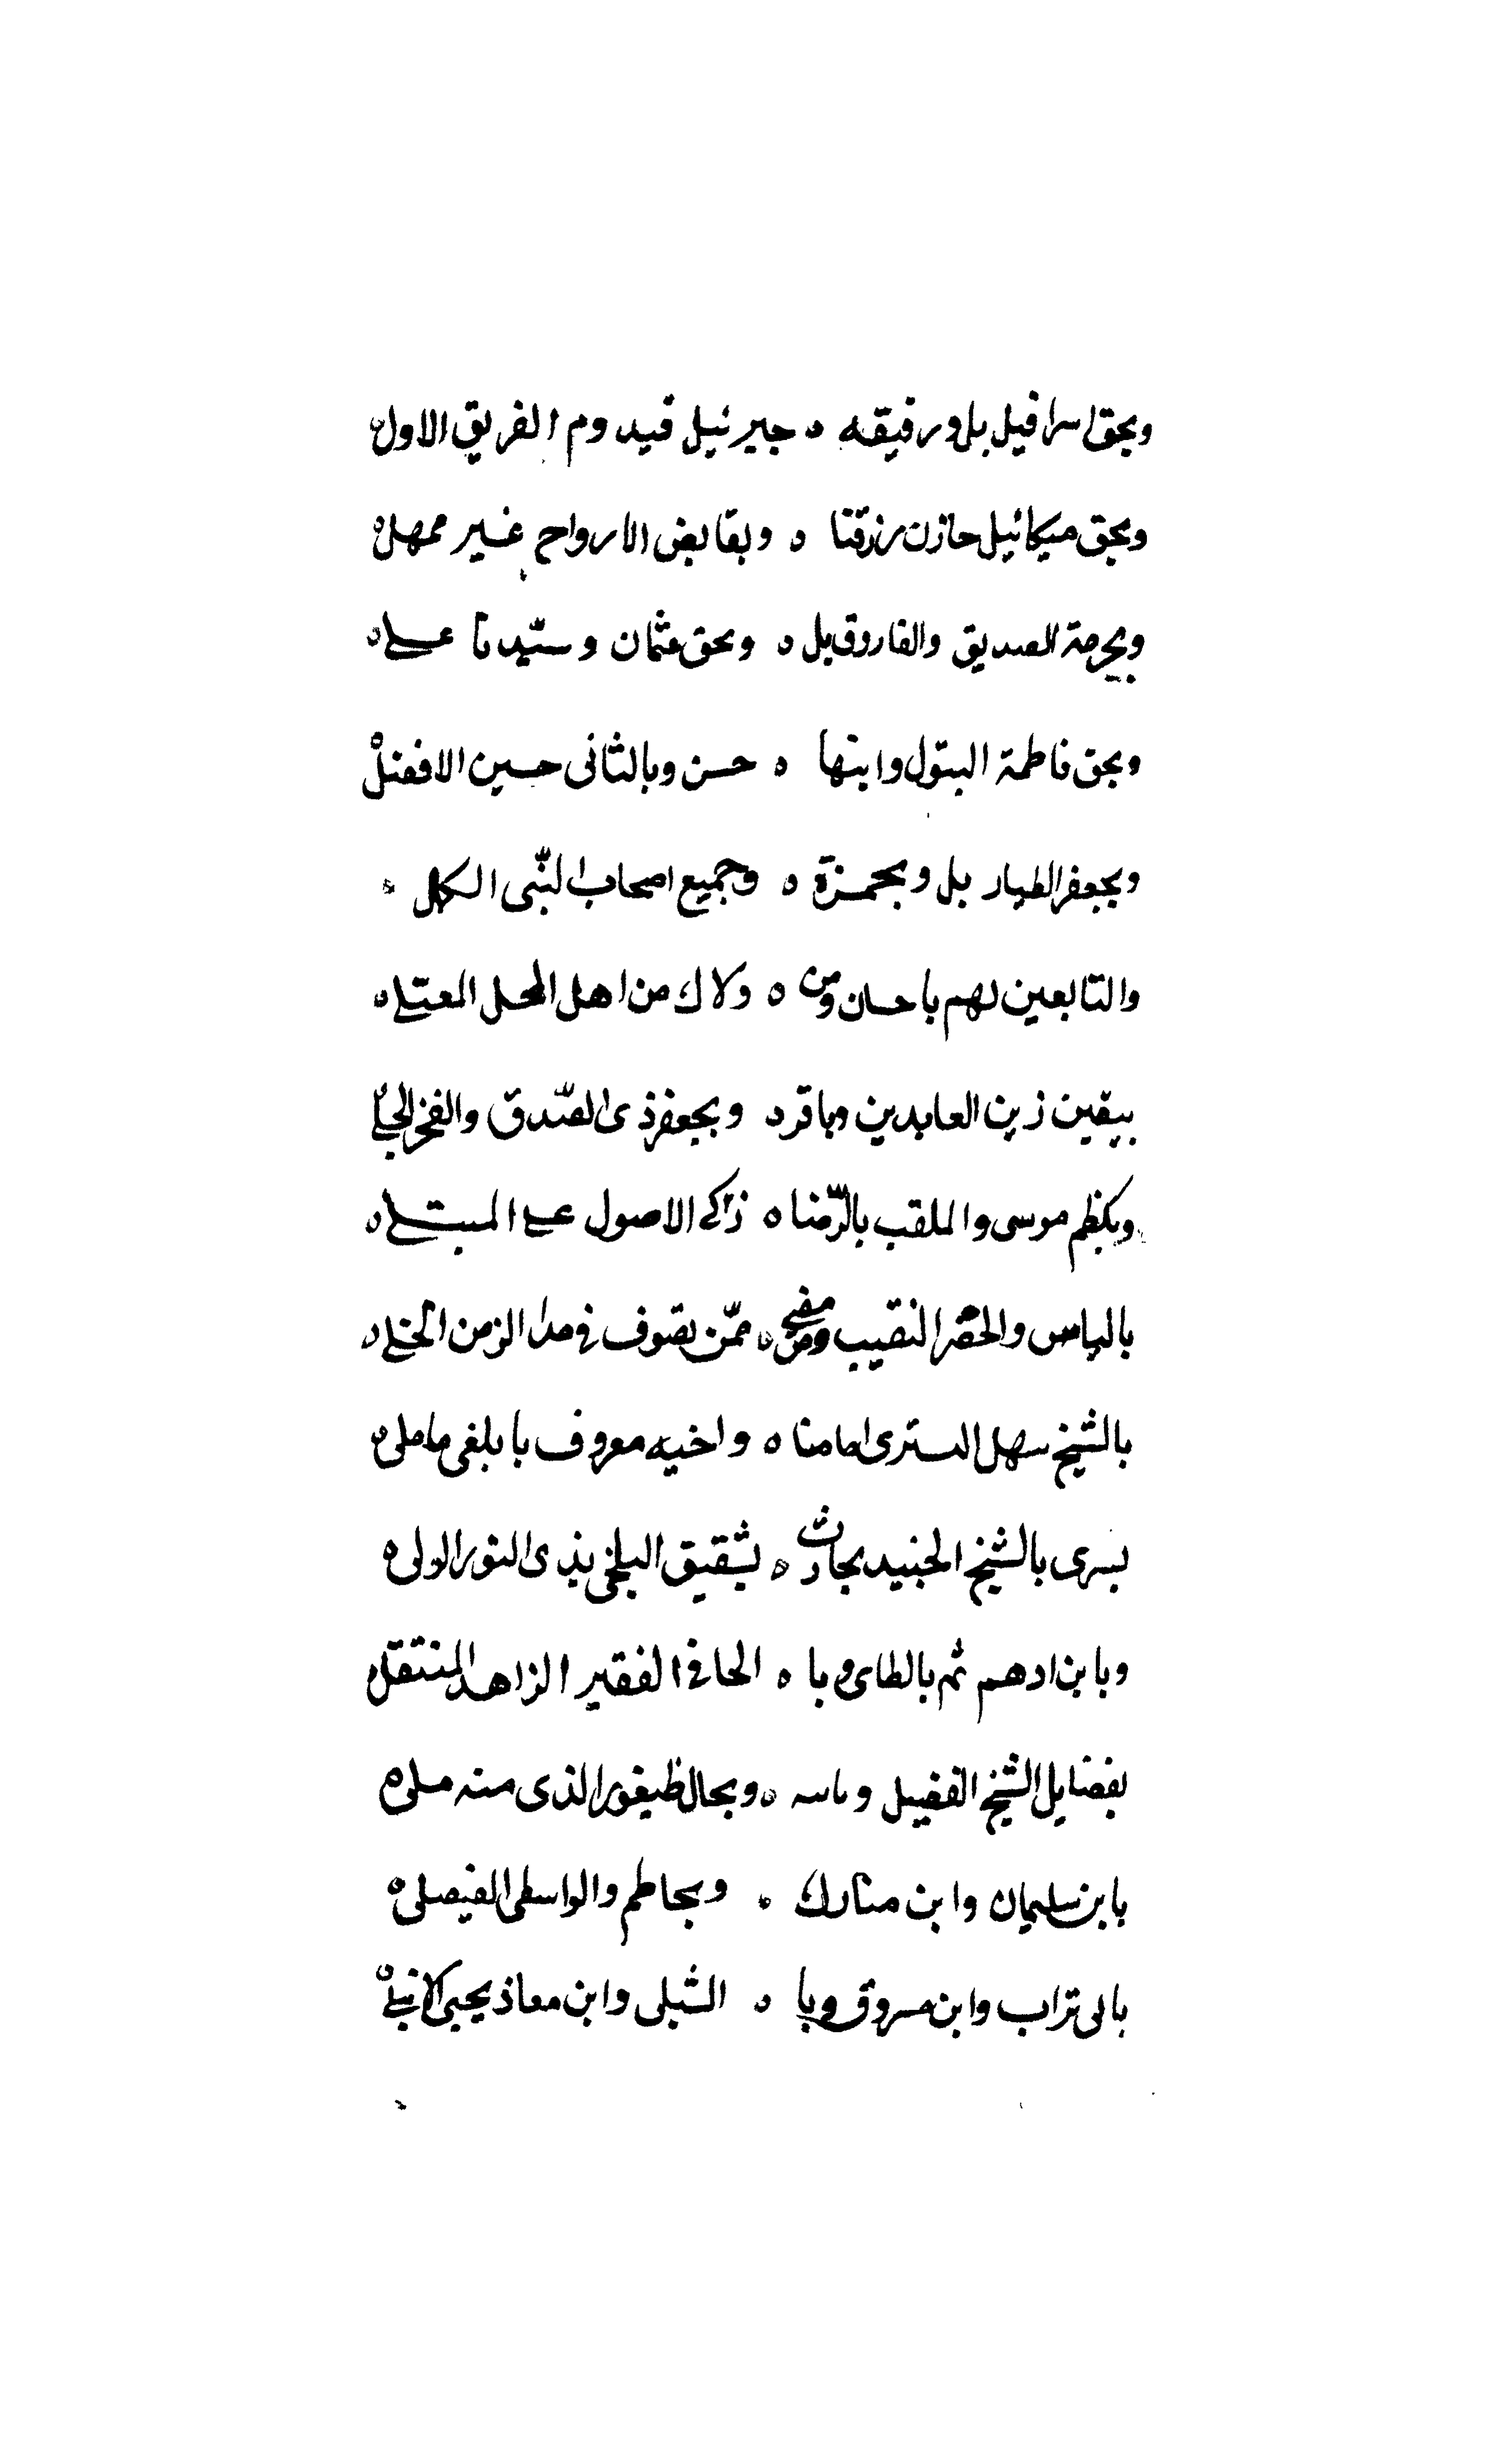 وبحق اسرافيل بل ورفيقه ه جبرئيل قيدوم الفريق الاول ه
وبحق ميكائيل خازن رزقنا ه وبقابض الارواح غير ممهل ه
وبحرمة الصديق والفاروق بل ه وبحق عثمان وسيّدنا على ه
وبحق فاطمة البتول وابنها ه حسن وبالثانى حسين الافضل ه
وبجعفر الطيار بل وبحمزة ه وجميع اصحاب النّبى الكمل ه
والتابعين لهم باحسان ومن ه ولاك من اهل المحل المعتلى ه
بيقين زين العابدين وباقر ه وبجعفر ذى الصّدق والفخر الجلى
وبكظم موسى والملقب بالرّضا ه زاكى الاصول على المبتلى ه
بالياس والخضر النقيب ومن مضى ه ممّن تصوف فى مدا الزمن الخلى ه
بالشيخ سهل التسترى امامنا ه واخيه معروف بابلغى ماملى ه
بسرى بالشيخ الجنيد بحارث ه بشقيق البلخى بذى النور الولى ه
وبابن ادهم ثم بالطاى وبا ه الحافى الفقير الزاهد المتنقل ه
بفضايل الشيخ الفضيل وبابنه ه وبحال طيفور الذى منه ملى ه
بابن سليمان وابن مبارك ه وبحاطم والواسطى الفيصلى ه
بابى تراب وابن مسروق وبا ه الشبلى وابن معاذ يحيى